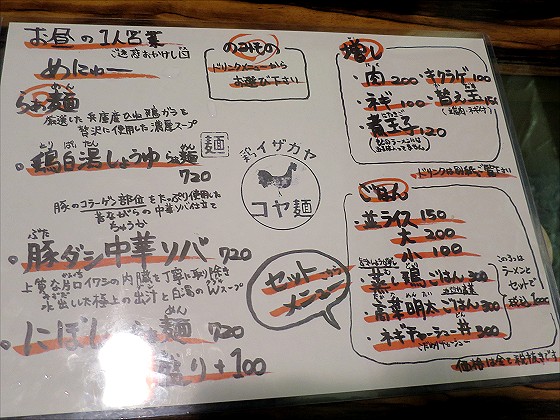 お昼の1人営業
ご迷惑おかけします
めにゅー
らぁ麺
めん
厳選した兵庫産ひね鶏ガラを
贅沢に使用した濃厚スープ
とり ぱいたん めん
・鶏白湯しょうゆらぁ麺
720
豚のコラーゲン部位をたっぷり使用した
昔ながらの中華ソバ仕立て
ぶた ちゅうか
・豚ダシ中華ソバ 720
上質な片口イワシの内臓を丁寧に取り除き
水出しした極上の出汁と白湯のWスープ
・にぼし 麺 720
盛り+100
のみもの
ドリンクメニューから
お選び下さい
麺
イザカヤ
コヤ麺
セット
メニュー
増し
・肉 200 ・キクラゲ 100
・ネギ 100 ・替え玉 150
・煮玉子 120
ドリンクは別紙ご覧下さい
ごはん
・並ライス 150
大 200
小 100
・蒸し鶏ごはん 300
・高菜明太ごはん 300
・ネギチャーシュー丼 300
この3つは
ラーメンと
セットで
100
価格は全て税抜きです